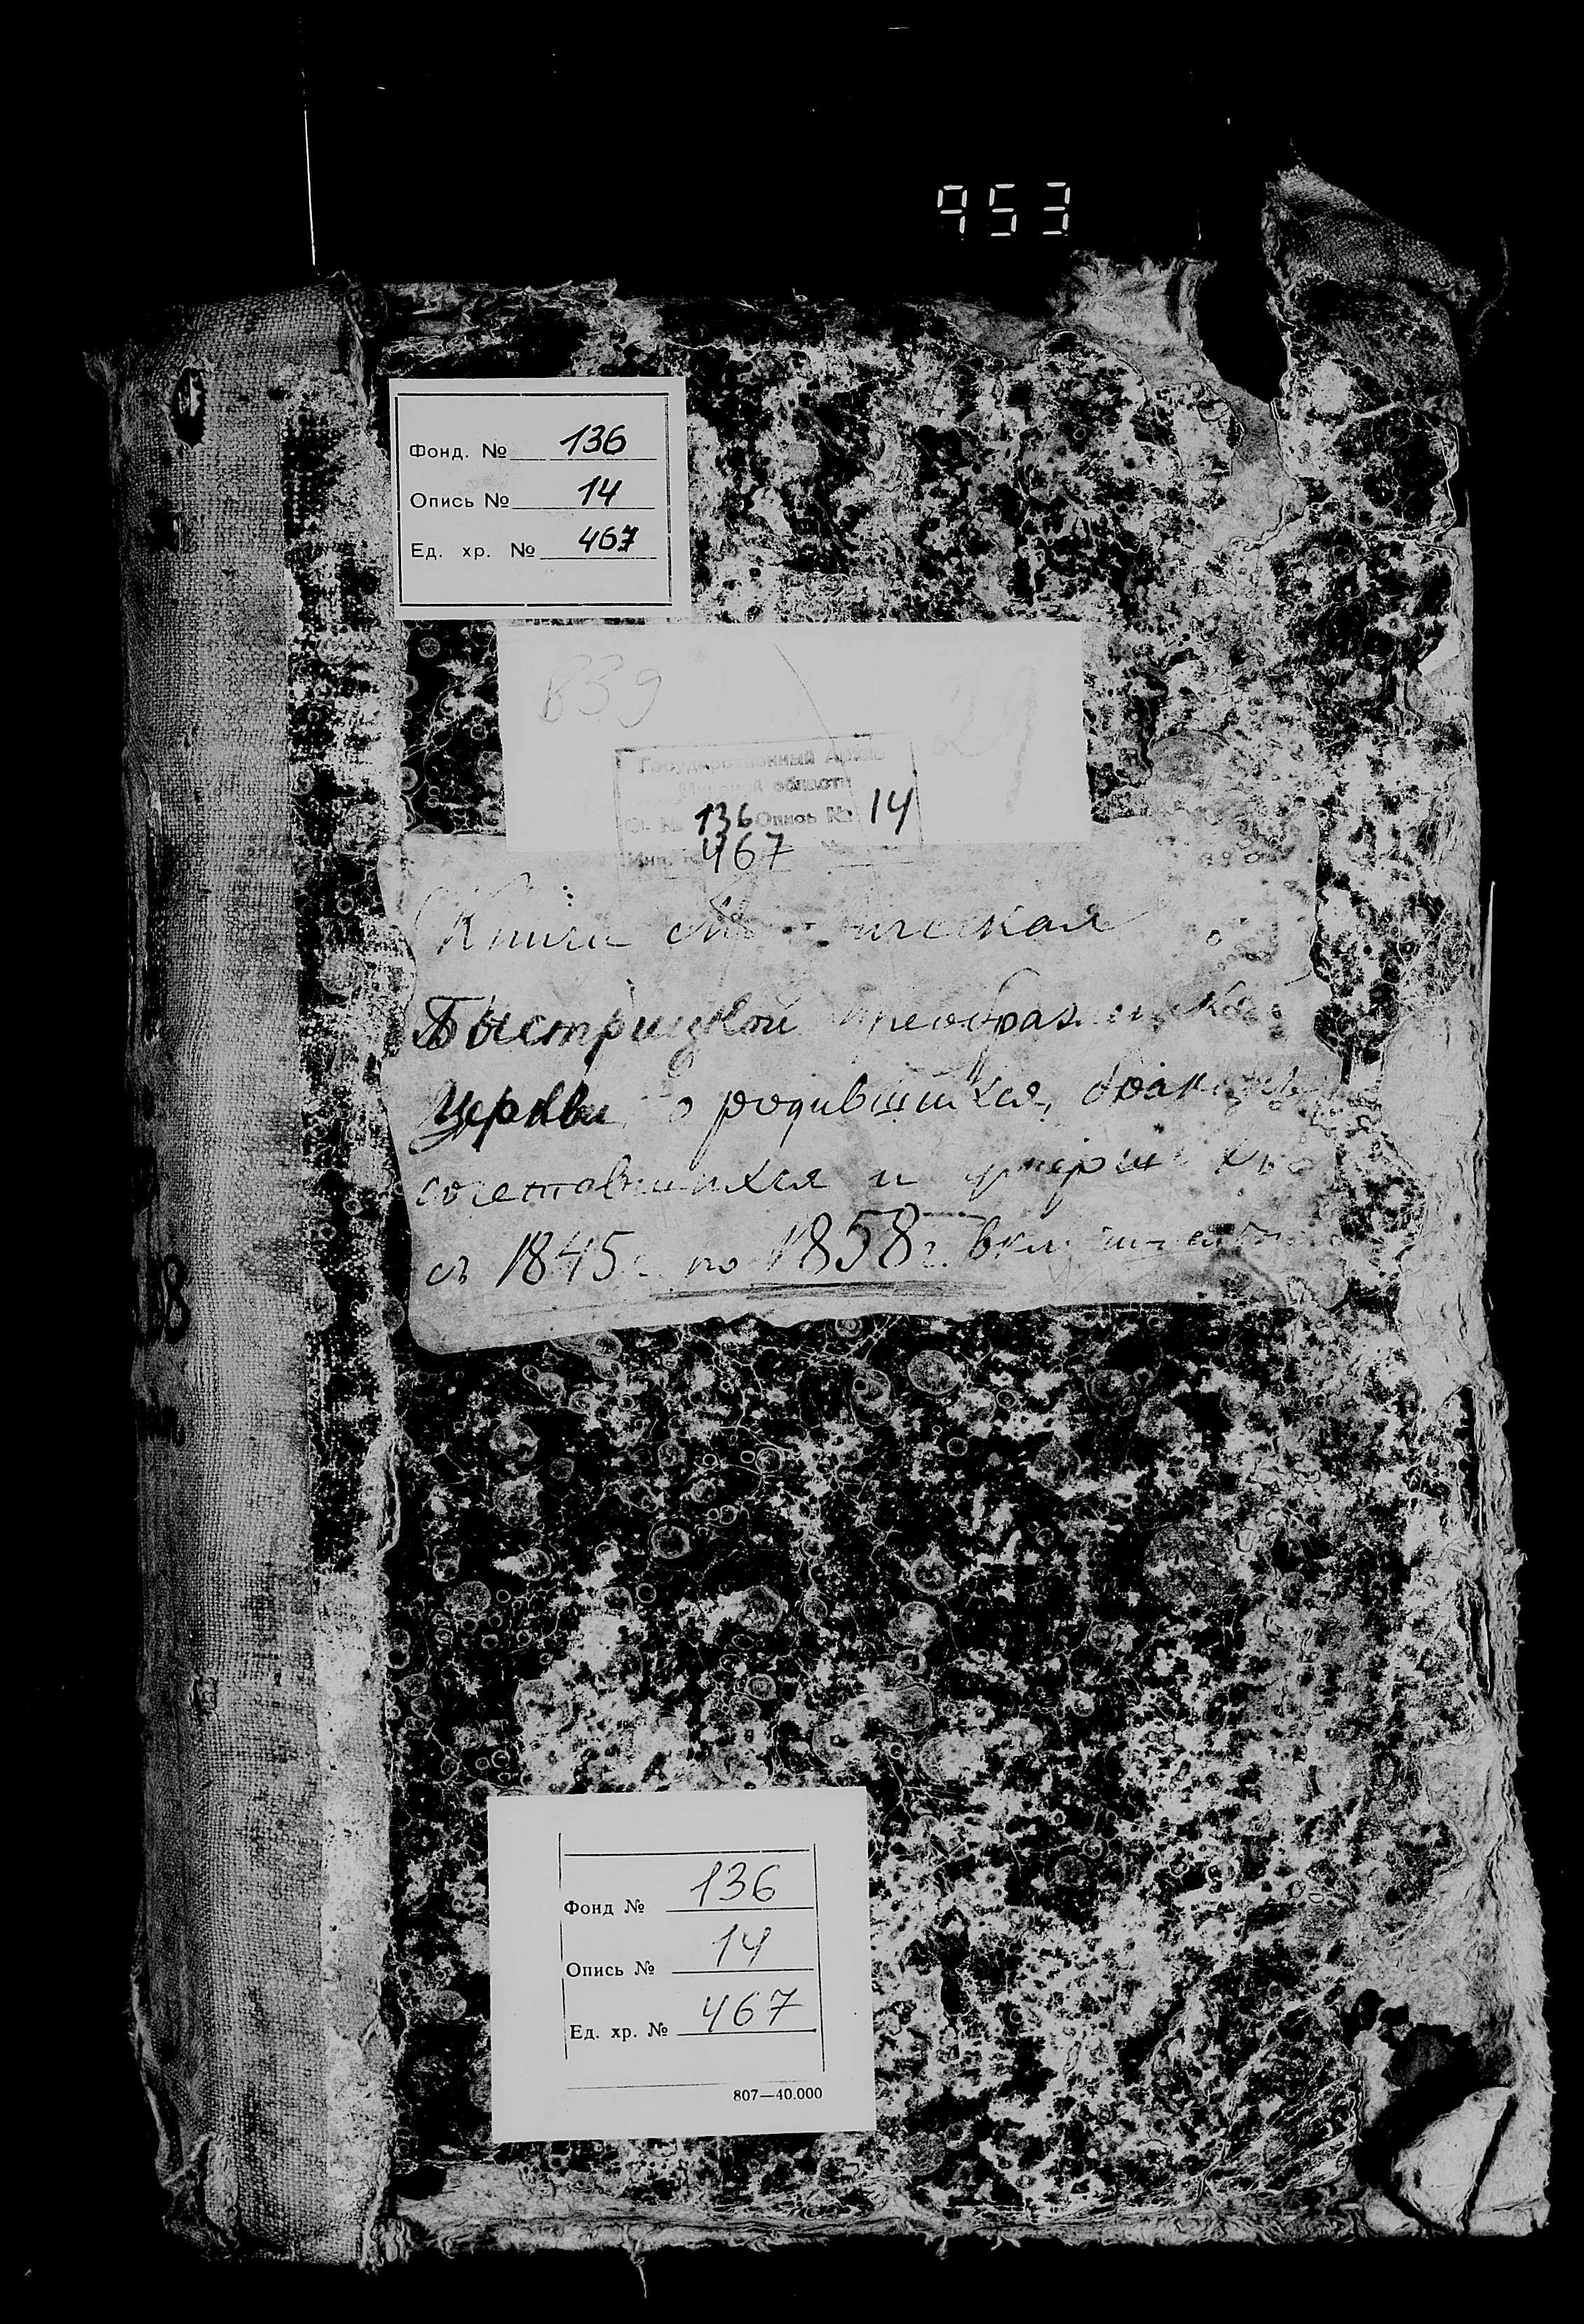 953
Фонд. № 136
Опись № 14
Ед. хр. № 467
839 29
Государственный Архив
Минской области
Ф. № 136 Опись № 14
Инв. № 467
Книга
Быстрицкой
Церкви о родившихся,
сочетавшихся и
съ 1845 г. по 1858 г.
Фонд № 136
Опись № 14
Ед. хр. № 467
807—40.000